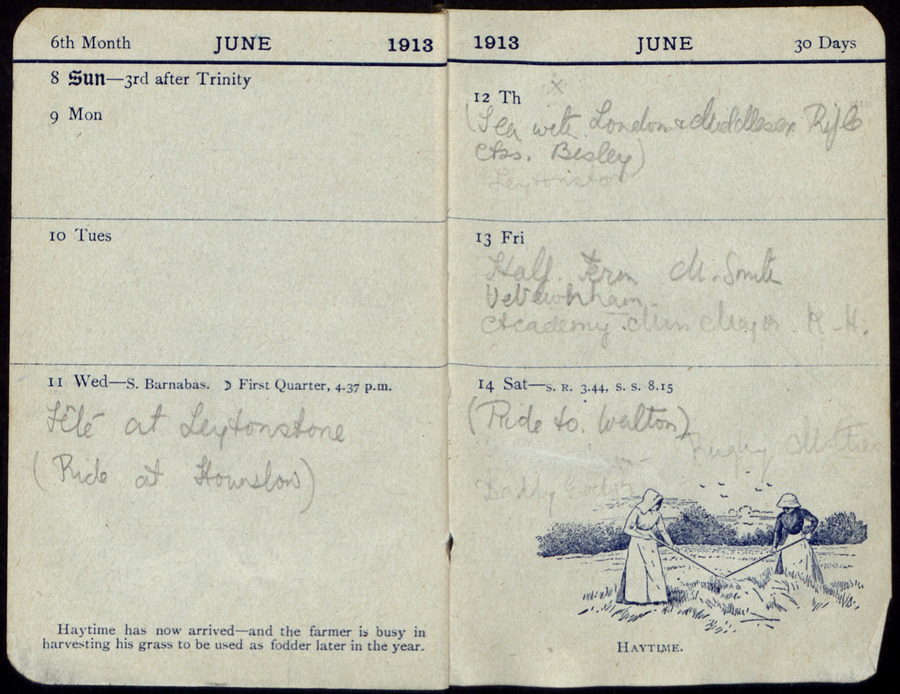 6th Month JUNE 1913
8 Sun—3rd after Trinity
9 Mon
10 Tues
11 Wed—S. Barnabas. ☽ First Quarter, 4.37 p.m.
Fête at Leytonstone
(Ride at Hounslow)
Haytime has now arrived—and the farmer is busy in
harvesting his grass to be used as fodder later in the year.
1913 JUNE 30 Days
x
12 Th
(Tea with London & Middlesex Rifle
Ass. Bisley)
Leytonstone
13 Fri
Half Term M. Smith
Academy R. H.
14 Sat—S. R. 3.44, S. S. 8.15
(Ride to Walton)
Daddy
HAYTIME.